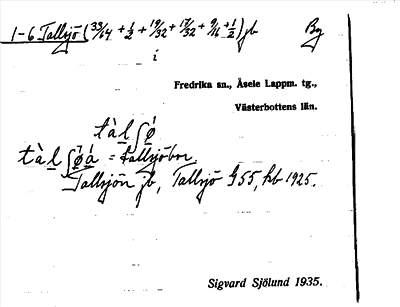 1-6 Tallsjö (33/64 + 1/2 + 19/32 + 17/32 + 9/16 + 1/2) jb By
i
Fredrika sn., Åsele Lappm. tg.,
Västerbottens län.
tàlʃǿ
tàlʃǿá = tallsjöbor.
Tallsjön jb, Tallsjö G 55, hb 1925.
Sigvard Sjölund 1935.